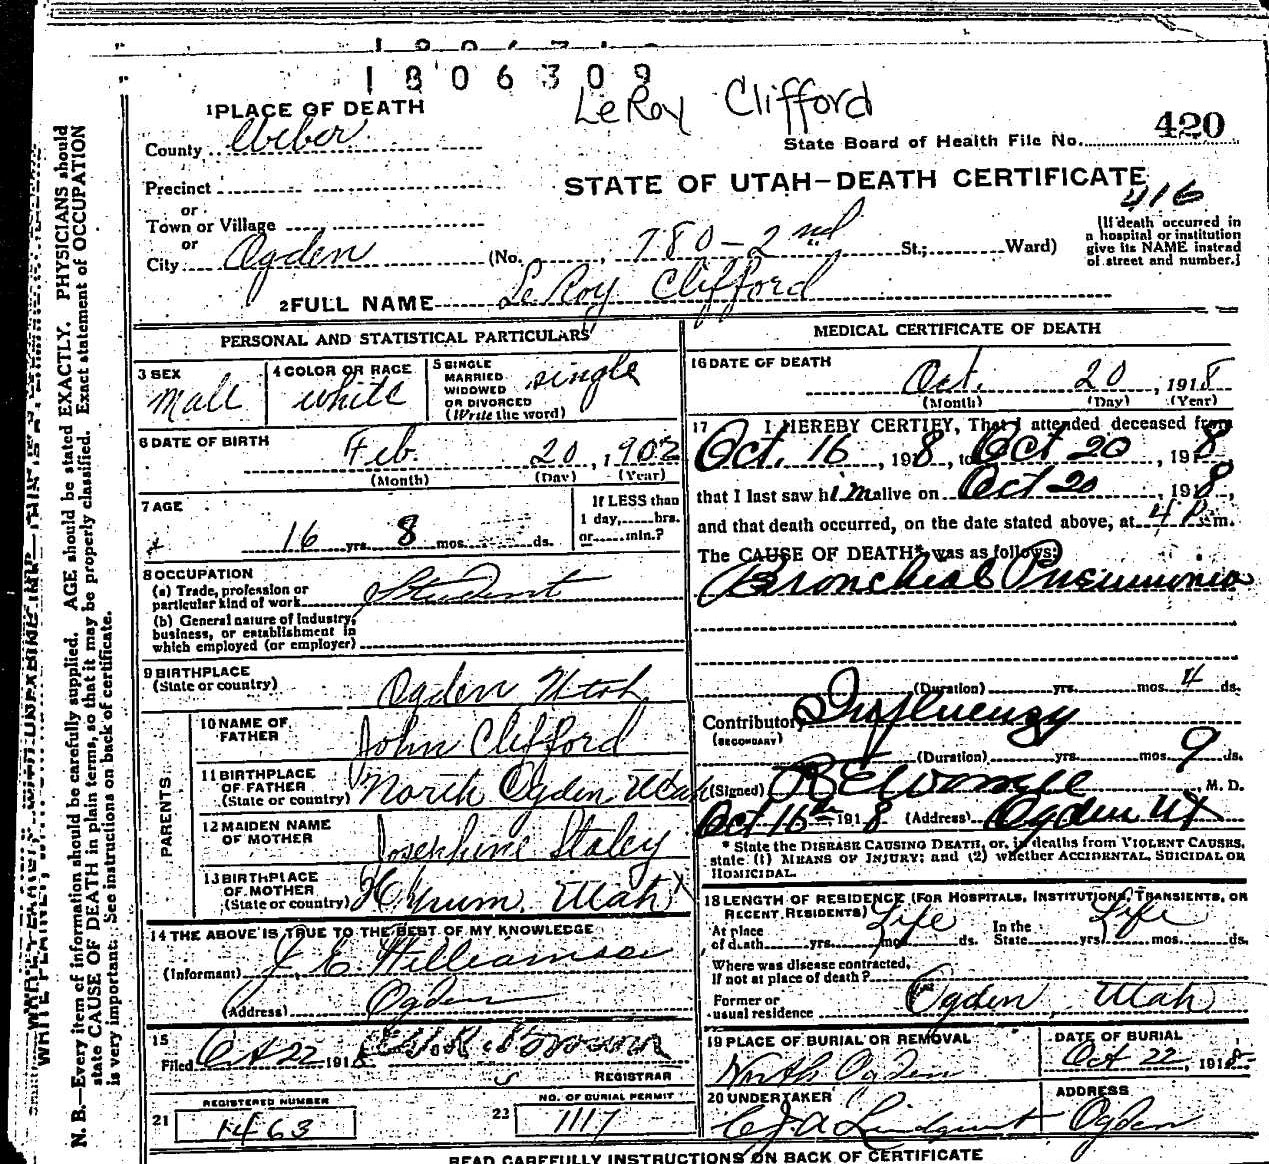 1806309
LeRoy Clifford
1 PLACE OF DEATH
County Weber
State Board of Health File No. 420
Precinct
STATE OF UTAH—DEATH CERTIFICATE
416
or
Town or Village
or
City Ogden (No. 780 - 2nd St.; Ward)
[If death occurred in
a hospital or institution
give its NAME instead
of street and number.]
2 FULL NAME LeRoy Clifford
PERSONAL AND STATISTICAL PARTICULARS
3 SEX
Male
4 COLOR OR RACE
white
5 SINGLE
MARRIED
WIDOWED
OR DIVORCED
(Write the word)
single
6 DATE OF BIRTH
Feb. 20, 1902
(Month) (Day) (Year)
7 AGE
16 yrs. 8 mos. ds.
If LESS than
1 day, hrs.
or min.?
8 OCCUPATION
(a) Trade, profession or
particular kind of work Student
(b) General nature of Industry,
business, or establishment in
which employed (or employer)
9 BIRTHPLACE
(State or country)
Ogden Utah
PARENTS
10 NAME OF
FATHER
John Clifford
11 BIRTHPLACE
OF FATHER
(State or country)
North Ogden Utah
12 MAIDEN NAME
OF MOTHER
Josephine Staley
13 BIRTHPLACE
OF MOTHER
(State or country)
Hyrum, Utah
14 THE ABOVE IS TRUE TO THE BEST OF MY KNOWLEDGE
(Informant) J. E. Williamson
(Address) Ogden
15
Filed Oct 22 1918
REGISTRAR
21 REGISTERED NUMBER
1463
22 NO. OF BURIAL PERMIT
1117
MEDICAL CERTIFICATE OF DEATH
16 DATE OF DEATH
Oct. 20, 1918
(Month) (Day) (Year)
17 I HEREBY CERTIFY, That I attended deceased from
Oct. 16, 1918, to Oct 20, 1918
that I last saw him alive on Oct 20, 1918,
and that death occurred, on the date stated above, at 4 P. m.
The CAUSE OF DEATH* was as follows:
Bronchial Pneumonia
(Duration) yrs. mos. 4 ds.
Contributory Influenzy
(SECONDARY)
(Duration) yrs. mos. 9 ds.
(Signed) M. D.
Oct 16th 1918 (Address) Ogden Ut
* State the DISEASE CAUSING DEATH, or, in deaths from VIOLENT CAUSES,
state (1) MEANS OF INJURY; and (2) whether ACCIDENTAL, SUICIDAL OR
HOMICIDAL.
18 LENGTH OF RESIDENCE (FOR HOSPITALS, INSTITUTIONS, TRANSIENTS, OR
RECENT RESIDENTS)
At place
of death yrs. Life mos. ds.
In the
State yrs. Life mos. ds.
Where was disease contracted,
If not at place of death?
Former or
usual residence Ogden, Utah
19 PLACE OF BURIAL OR REMOVAL
North Ogden
DATE OF BURIAL
Oct 22, 1918
20 UNDERTAKER
Lindquist
ADDRESS
Ogden
READ CAREFULLY INSTRUCTIONS ON BACK OF CERTIFICATE
N. B.—Every item of information should be carefully supplied. AGE should be stated EXACTLY. PHYSICIANS should
state CAUSE OF DEATH in plain terms, so that it may be properly classified. Exact statement of OCCUPATION
is very important. See instructions on back of certificate.